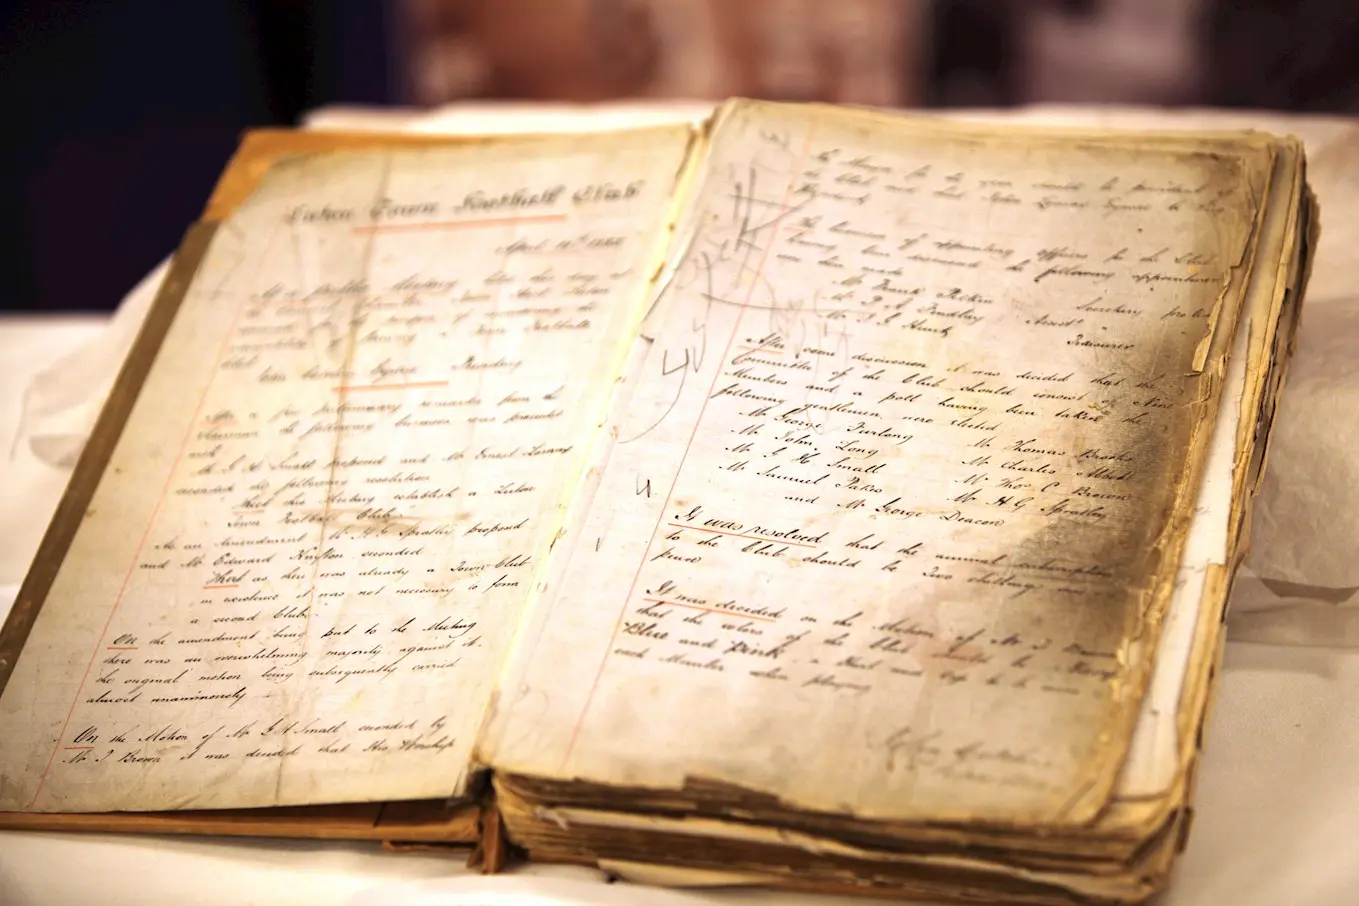 Luton Town Football Club
April 11th 1885
At a public Meeting held this day at
the purpose of considering
forming a Town Football
Club
Squire Presiding
After a few preliminary remarks from the
Chairman the following business was transacted
Mr G H Small proposed and Mr Ernest
seconded the following resolution
That this Meeting establish a Luton
Town Football Club
As an Amendment Mr H G Spratley proposed
and Mr Edward seconded
That as there was already a Town Club
in existence it was not necessary to form
a second Club.
On the amendment being put to the Meeting
there was an overwhelming majority against it.
the original motion being subsequently carried
almost unanimously
On the Motion of Mr G H Small seconded by
Mr J Brown it was decided that His Worship
the Mayor for the year should be president of
the Club and that
The business of appointing officers for the Club
having been discussed the following appointments
were then made
Mr Frank Pitkin Secretary pro tem
Mr D A Findlay Assist "
Mr J G Hunt Treasurer
After some discussion it was decided that the
Committee of the Club should consist of Nine
Members and a poll having been taken the
following gentlemen were elected
Mr George Furlong Mr Thomas Brooks
Mr John Long Mr Charles
Mr G H Small Mr Thos C Brown
Mr Samuel Pakes Mr H G Spratley
and Mr George Deacon
It was resolved that the annual subscription
to the Club should be Two shillings and
pence
It was decided on the Motion of Mr J
that the colors of the Club should be
Blue and Pink. a Shirt and Cap to be worn
each Member when playing